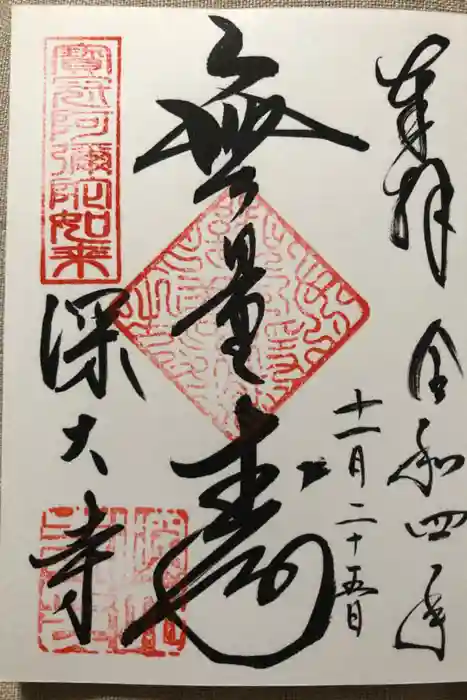 奉拝
令和四年
十一月二十五日
無量壽
寶冠阿彌陀如来
深大寺